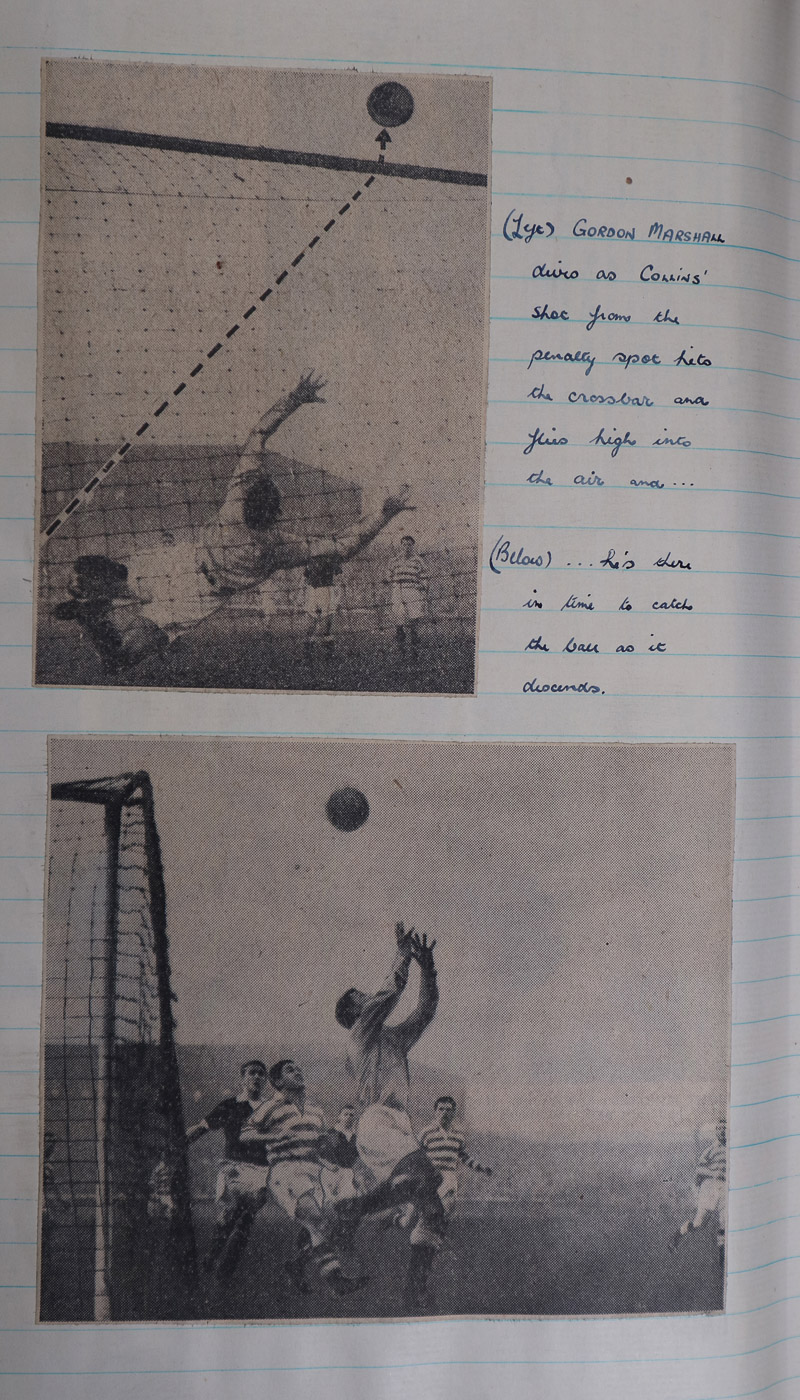 (Left) GORDON MARSHALL
dives as COLLINS'
shot from the
penalty spot hits
the crossbar and
flies high into
the air and ...
(Below) ... he's there
in time to catch
the ball as it
descends.